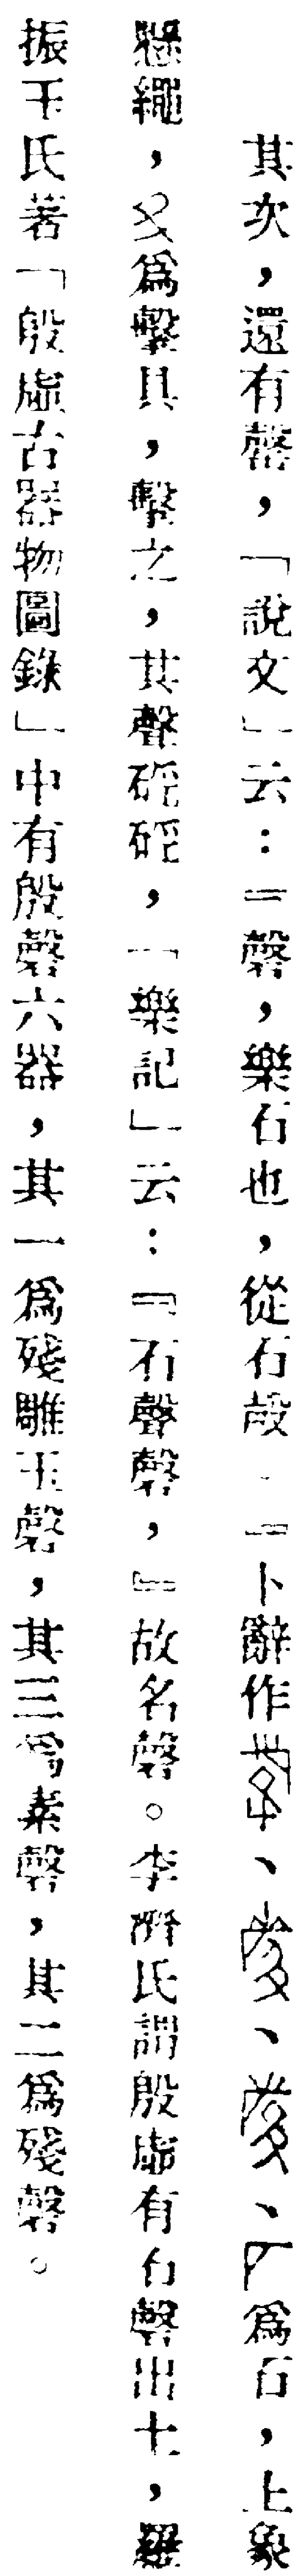 其次，還有磬，「說文」云：『磬，樂石也，從石殸。』卜辭作、、、為石，上象
懸繩，為擊具，擊之，其聲硜硜，「樂記」云：『石聲磬，』故名磬。李濟氏謂殷虛有石磬出土，羅
振玉氏著「殷虛古器物圖錄」中有殷磬六器，其一為殘雕玉磬，其三為素磬，其二為殘磬。